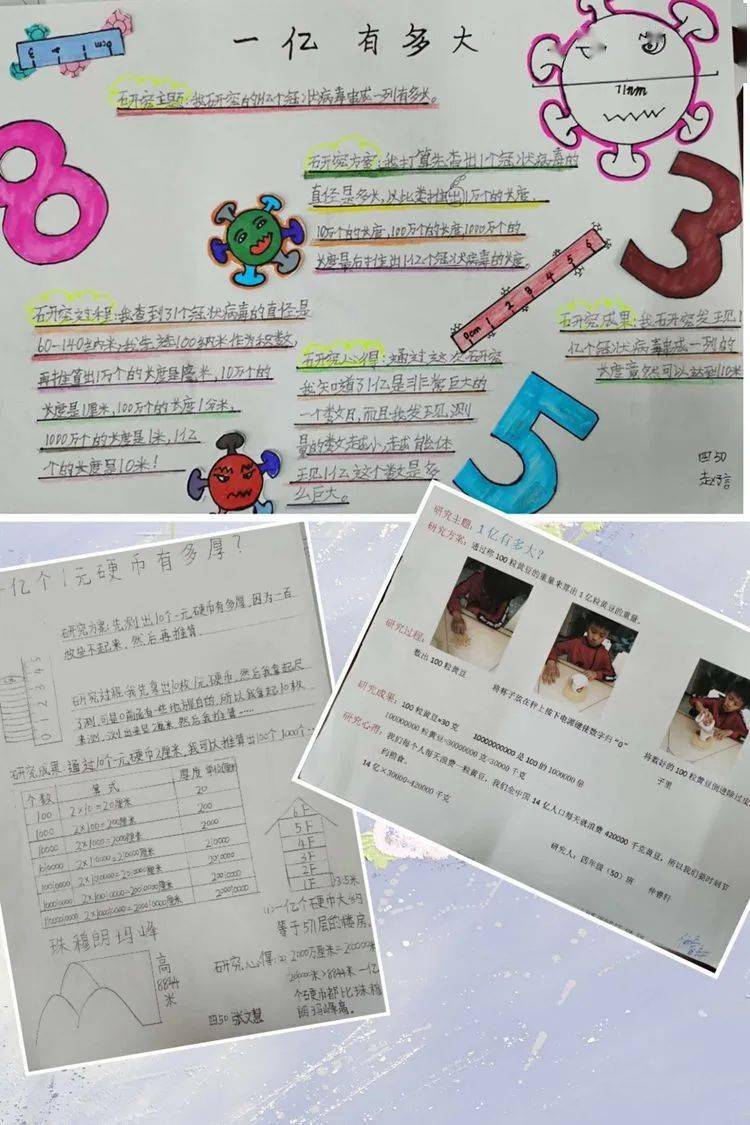 一亿有多大
研究主题:我研究的1亿个冠状病毒串成一列有多长。
71nm
研究方案:我打算先查出1个冠状病毒的
直径是多少,以此类推出1万个的长度,
10万个的长度,100万个的长度,1000万个的
长度最后推出1亿个冠状病毒的长度。
0cm 1 2 3 4 5 6
研究过程:我查到了1个冠状病毒的直径是
60-140纳米,我先选100纳米作为标数,
再推算出1万个的长度是毫米,10万个的
长度是1厘米,100万个的长度1分米,
1000万个的长度是1米,1亿
个的长度是10米!
研究心得:通过这次研究
我知道了1亿是非常巨大的
一个数目,而且我发现,测
量的数越小,越能体
现1亿这个数是多
么巨大。
研究成果:我研究发现1
亿个冠状病毒串成一列的
长度竟然可以达到10米
四50
8
3
5
一亿个1元硬币有多厚?
研究方案:先测出10个一元硬币有多厚,因为一百
然后再推算
研究过程:我先拿出10枚1元硬币,然后我拿起尺
子测,可是0前面有一些地方是白的,所以我拿起10枚
来测,测出来是2厘米,然后我推算……
0 1 2 3 4 5
研究成果:通过10个一元硬币2厘米,我可以推算出100个、1000个…
个数 算式 厚度 单位(厘米)
100 2×10=20厘米 20
1000 2×100=200厘米 200
2×1000=2000厘米 2000
6F
5F
4F
3F
2F
1F
3.5米
(1)一亿个硬币大约
等于571层的楼房。
珠穆朗玛峰
高
8844
米
研究心得:(2) 2000万厘米=200000米
200000米>8844米 一亿
个硬币都比珠穆
朗玛峰高。
四50 张文慧
研究主题:1亿有多大?
研究方案:通过称100粒黄豆的重量来算出1亿粒黄豆的重量。
研究过程:
数出100粒黄豆
将杯子放在秤上按下电源键使数字归“0”
将数好的100粒黄豆倒进
子里
研究成果:100粒黄豆=30克 100000000是100的1000000倍
100000000粒黄豆=30000000克=30000千克
研究心得:我们每个人每天浪费一粒黄豆,我们全中国14亿人口每天就浪费420000千克黄豆,所以我们要时刻节
约粮食。
14亿×30000=420000千克
研究人:四年级(50)班